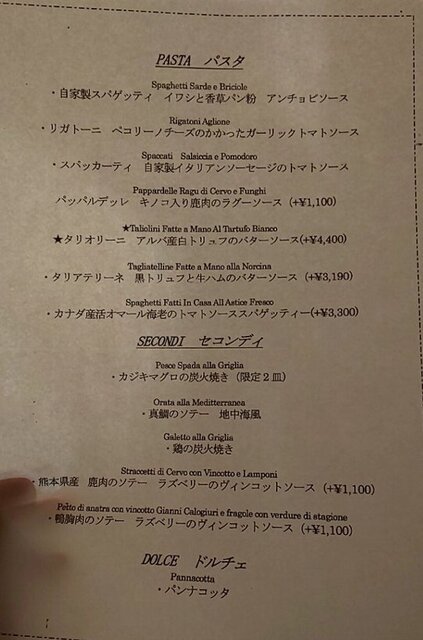 PASTA パスタ
Spaghetti Sarde e Briciole
・自家製スパゲッティ イワシと香草パン粉 アンチョビソース
Rigatoni Aglione
・リガトーニ ペコリーノチーズのかかったガーリックトマトソース
Spaccati Salsiccia e Pomodoro
・スパッカーティ 自家製イタリアンソーセージのトマトソース
Pappardelle Ragu di Cervo e Funghi
パッパルデッレ キノコ入り鹿肉のラグーソース (+¥1,100)
★Taliolini Fatte a Mano Al Tartufo Bianco
★タリオリーニ アルバ産白トリュフのバターソース(+¥4,400)
Tagliatelline Fatte a Mano alla Norcina
・タリアテリーネ 黒トリュフと生ハムのバターソース (+¥3,190)
Spaghetti Fatti In Casa All Astice Fresco
・カナダ産活オマール海老のトマトソーススパゲッティー(+¥3,300)
SECONDI セコンディ
Pesce Spada alla Griglia
・カジキマグロの炭火焼き (限定２皿)
Orata alla Mediterranea
・真鯛のソテー 地中海風
Galetto alla Griglia
・鶏の炭火焼き
Straccetti di Cervo con Vincotto e Lamponi
・熊本県産 鹿肉のソテー ラズベリーのヴィンコットソース (+¥1,100)
Petto di anatra con vincotto Gianni Calogiuri e fragole con verdure di stagione
・鴨胸肉のソテー ラズベリーのヴィンコットソース (+¥1,100)
DOLCE ドルチェ
Pannacotta
・パンナコッタ